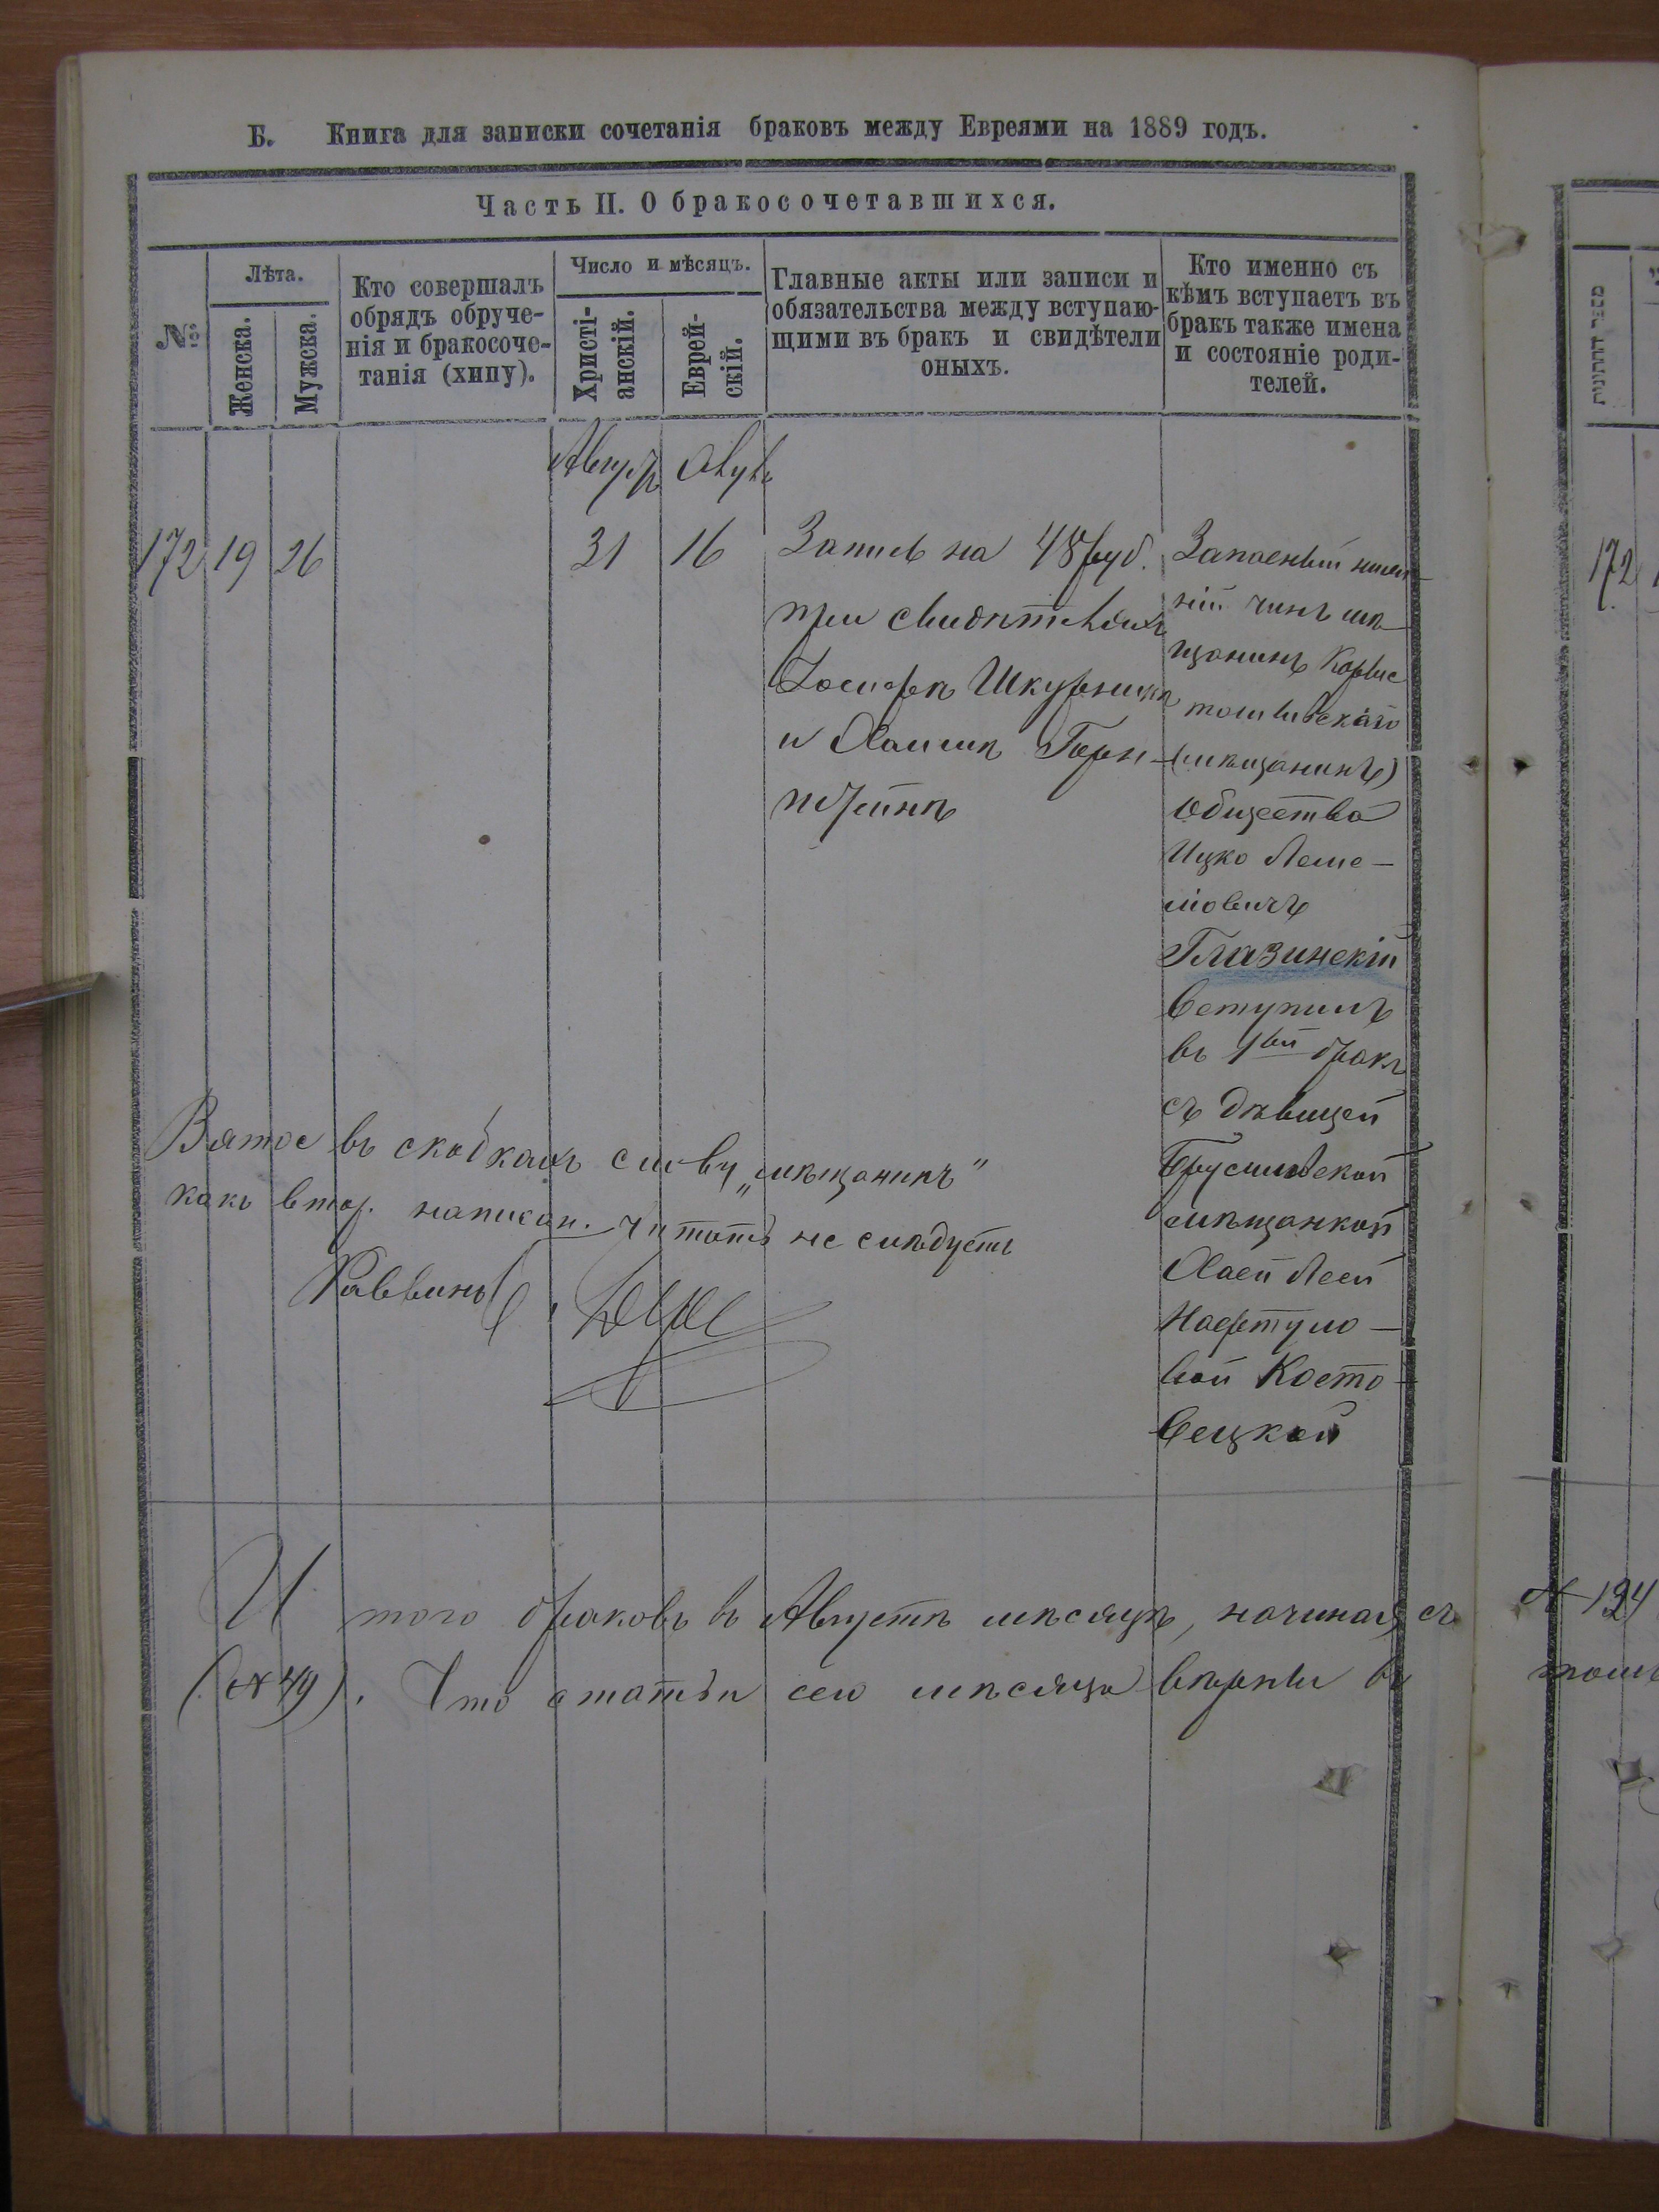 Б. Книга для записки сочетанія браковъ между Евреями на 1889 годъ.
Часть II. О бракосочетавшихся.
№
Лѣта.
Женска.
Мужска.
Кто совершалъ
обрядъ обруче-
нія и бракосоче-
танія (хипу).
Число и мѣсяцъ.
Христі-
анскій.
Еврей-
скій.
Главные акты или записи и
обязательства между вступаю-
щими въ бракъ и свидѣтели
оныхъ.
Кто именно съ
кѣмъ вступаетъ въ
бракъ также имена
и состояніе роди-
телей.
מספר החתונות
172
19
26
31
16
Запись на 48 руб.
при свидѣтеляхъ
Іосифѣ Шкурникѣ
и Хаимѣ Горн-
штейнѣ
Запасный
чинъ мѣ-
щанинъ
(мѣщанинъ)
общества
Ицко
Глазинскій
вступилъ
въ 1ый бракъ
съ дѣвицей
Брусиловской
мѣщанкой
Хаей Леей
Нафтуло-
вой Косто-
вецкой
172
Взятое въ скобкахъ слову „мѣщанинъ"
какъ втор. написан. читать не слѣдуетъ
Раввинъ
И того браковъ въ Августѣ мѣсяцѣ, начиная съ
№ 124
(№ 49). Что статьи сего мѣсяца вѣрны въ
томъ